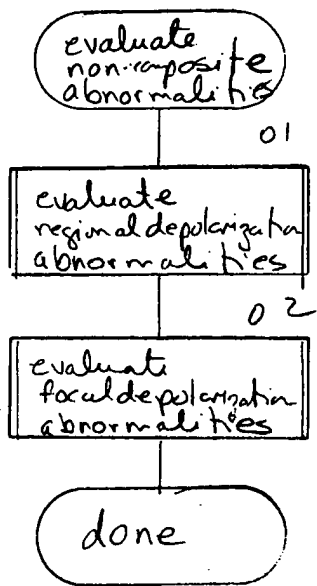 evaluate
non-composite
abnormalities
01
evaluate
regional depolarization
abnormalities
02
evaluate
focal depolarization
abnormalities
done